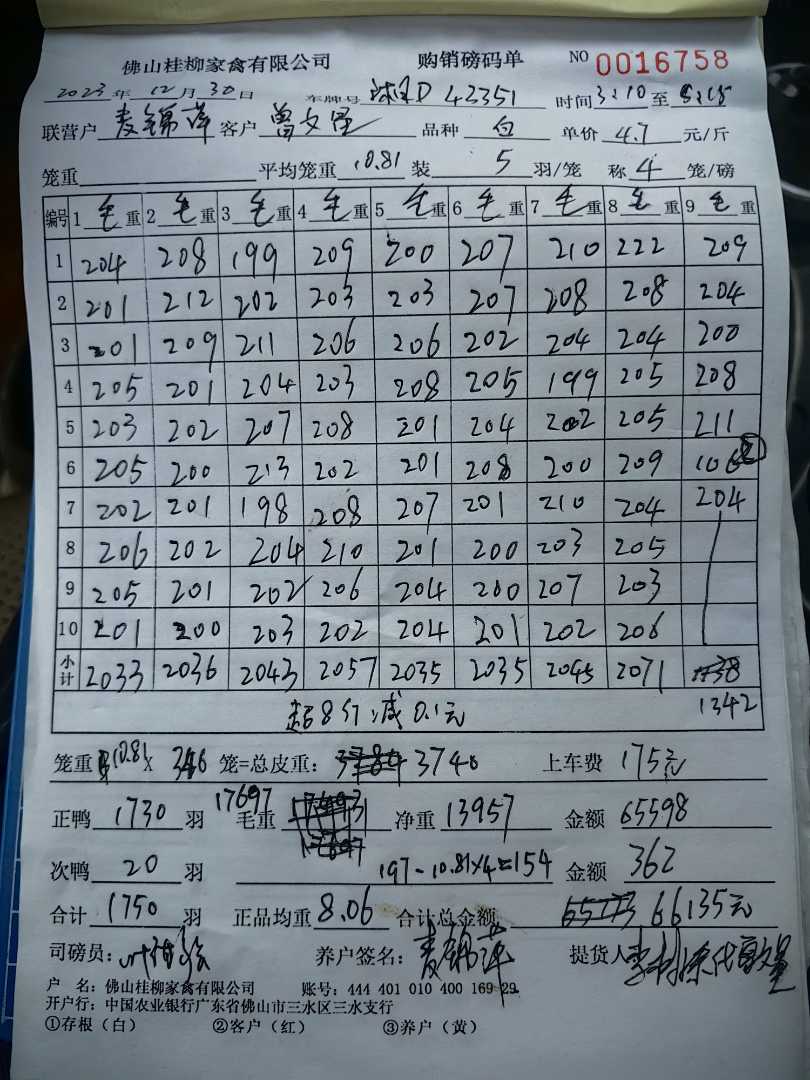 佛山桂柳家禽有限公司 购销磅码单 NO 0016758
2023年12月30日 车牌号 D 42351 时间 3:10 至
联营户 麦锦萍 客户 曾文 品种 白 单价 4.7 元/斤
笼重 平均笼重 10.81 装 5 羽/笼 称 4 笼/磅
编号 1 毛 重 2 毛 重 3 毛 重 4 毛 重 5 毛 重 6 毛 重 7 毛 重 8 毛 重 9 毛 重
1 204 208 199 209 200 207 210 222 209
2 201 212 202 203 203 207 208 208 204
3 201 209 211 206 206 202 204 204 200
4 205 201 204 203 208 205 199 205 208
5 203 202 207 208 201 204 202 205 211
6 205 200 213 202 201 208 200 209 106 ②
7 202 201 198 208 207 201 210 204 204
8 206 202 204 210 201 200 203 205
9 205 201 202 206 204 200 207 203
10 201 200 203 202 204 201 202 206
小计 2033 2036 2043 2057 2035 2035 2045 2071
超8斤减0.1元 1342
笼重 10.81 X 346 笼=总皮重: 3740 上车费 175元
正鸭 1730 羽 17697 毛重 净重 13957 金额 65598
次鸭 20 羽 197-10.81×4=154 金额 362
合计 1750 羽 正品均重 8.06 合计总金额 66135元
司磅员: 养户签名: 麦锦萍 提货人
户 名: 佛山桂柳家禽有限公司 账号: 444 401 010 400 169 29
开户行: 中国农业银行广东省佛山市三水区三水支行
①存根(白) ②客户(红) ③养户(黄)